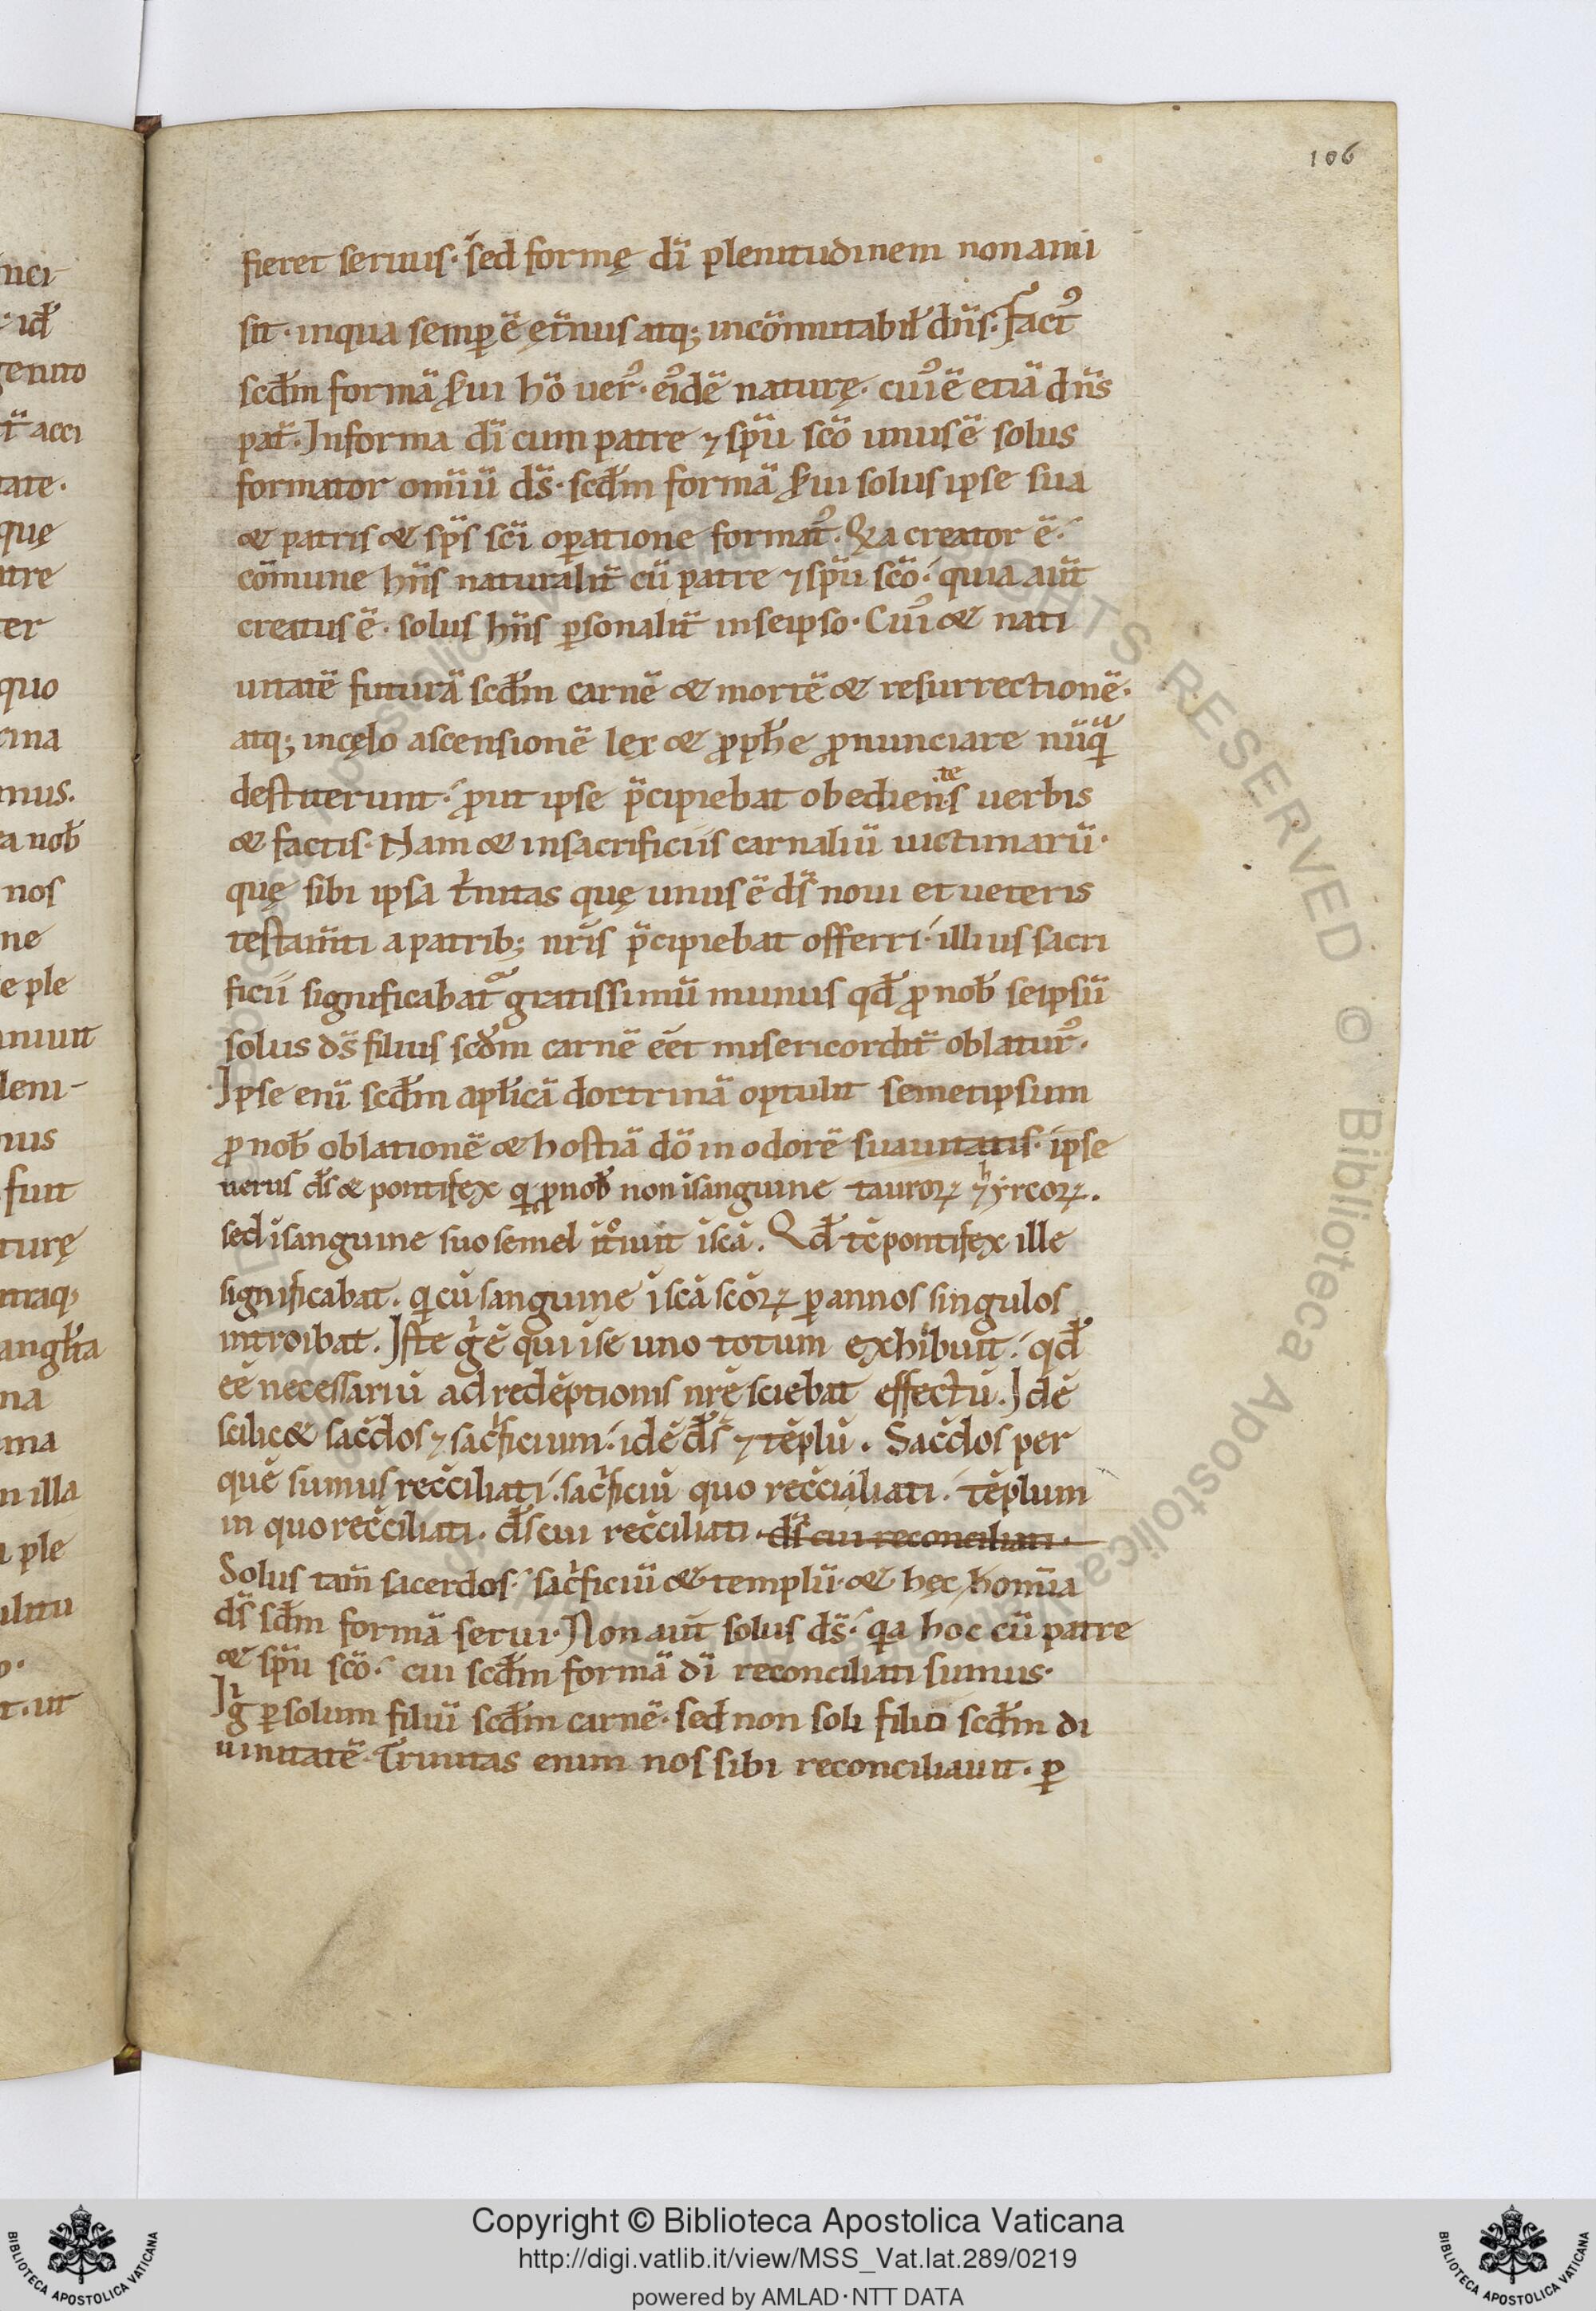 106
fieret seruus· sed formę dī plenitudinem non ami
sit· inqua semp ē ęt̄nus atq; incōmutabil̄ dn̄s· Fact᾽
scd̄m formā s̄ui hō uer᾽· ei᾽dē naturę· cui᾽ ē etiā dn̄s
pat̄· Informa dī cum patre ⁊ sp̄u scō unus ē solus
formator om̄iū ds̄· scd̄m formā s̄ui solus ipse sua
& patris & sp̄s scī oꝑatione format᾽· Q̄a creator ē·
cōmune hn̄s naturalit̄ cū patre ⁊ sp̄u scō· quia aūt
creatus ē· solus hn̄s ꝑsonalit̄ in seipso· Cui᾽ & nati
uitatē futurā scd̄m carnē & mortē & resurrectionē·
atq; incęlo ascensionē lex & ꝓph̄e ꝓnunciare nūq̄
destiterunt· ꝓut ipse p̄cipiebat obediens te uerbis
& factis· Nam & insacrificiis carnaliū uictimarū·
quę sibi ipsa t̄nitas quę unus ē ds̄ noui et ueteris
testam̄ti apatrib; nr̄is p̄cipiebat offerri· illius sacri
ficii significabat᾽ gratissimū munus qd̄ ꝓ nob̄ seipsū
solus ds̄ filius scd̄m carnē eēt misericordit̄ oblatur᾽·
Ipse enī scd̄m apl̄icā doctrinā optulit semetipsum
ꝓ nob̄ oblationē & hostiā dō in odorē suauitatis· ipse
uerus ds̄ & pontifex q̄ ꝓnob̄ non isanguine tauroꝝ ⁊ hyrcoꝝ.
sed isanguine suo semel it̊iuit iscā. Qd̄ tē pontifex ille
significabat. q̄ cū sanguine iscā scōꝝ ꝑ annos singulos
introibat. Iste ḡ ē qui ise uno totum exhibuit· qd̄
eē necessariū ad redēptionis nr̄ę sciebat effectū. Idē
scilic& sac̄dos ⁊ sac̄ficium· idē ds̄ ⁊ tēplū. Sac̄dos per
quē sumus rec̄ciliati· sac̄ficiū quo rec̄ciliati· tēplum
in quo rec̄ciliati· ds̄ cui rec̄ciliati· ds̄ cui reconciliati·
Solus tam̄ sacerdos· sac̄ficiū & templū· & hęc homīa
ds̄ sd̄m formā serui· Non aūt solus ds̄· q̄a hoc cū patre
& sp̄u scō· cui scd̄m formā dī reconciliati sumus·
Iḡ ꝑsolum filiū scd̄m carnē· sed non soli filio scd̄m di
uinitatē· Trinitas enim nos sibi reconciliauit· ꝑ
Copyright © Biblioteca Apostolica Vaticana
http://digi.vatlib.it/view/MSS_Vat.lat.289/0219
powered by AMLAD·NTT DATA
BIBLIOTECA APOSTOLICA VATICANA
BIBLIOTECA APOSTOLICA VATICANA